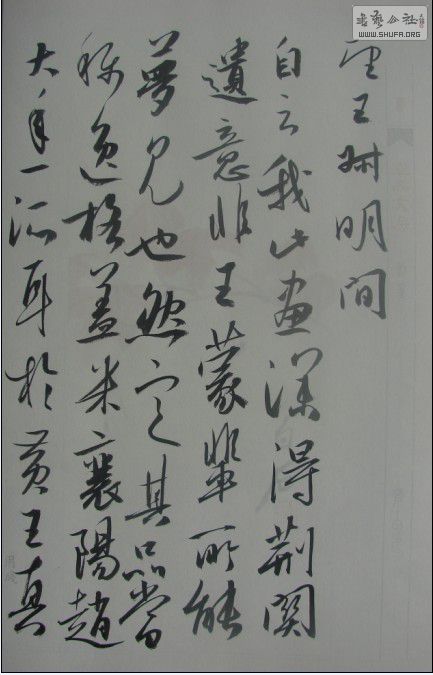 書藝公社
WWW.SHUFA.ORG
王叔明间
自云我此画深得荆关
遗意非王蒙辈所能
梦见也然定其品当
称逸格盖米襄阳赵
大年一派耳於黄王真